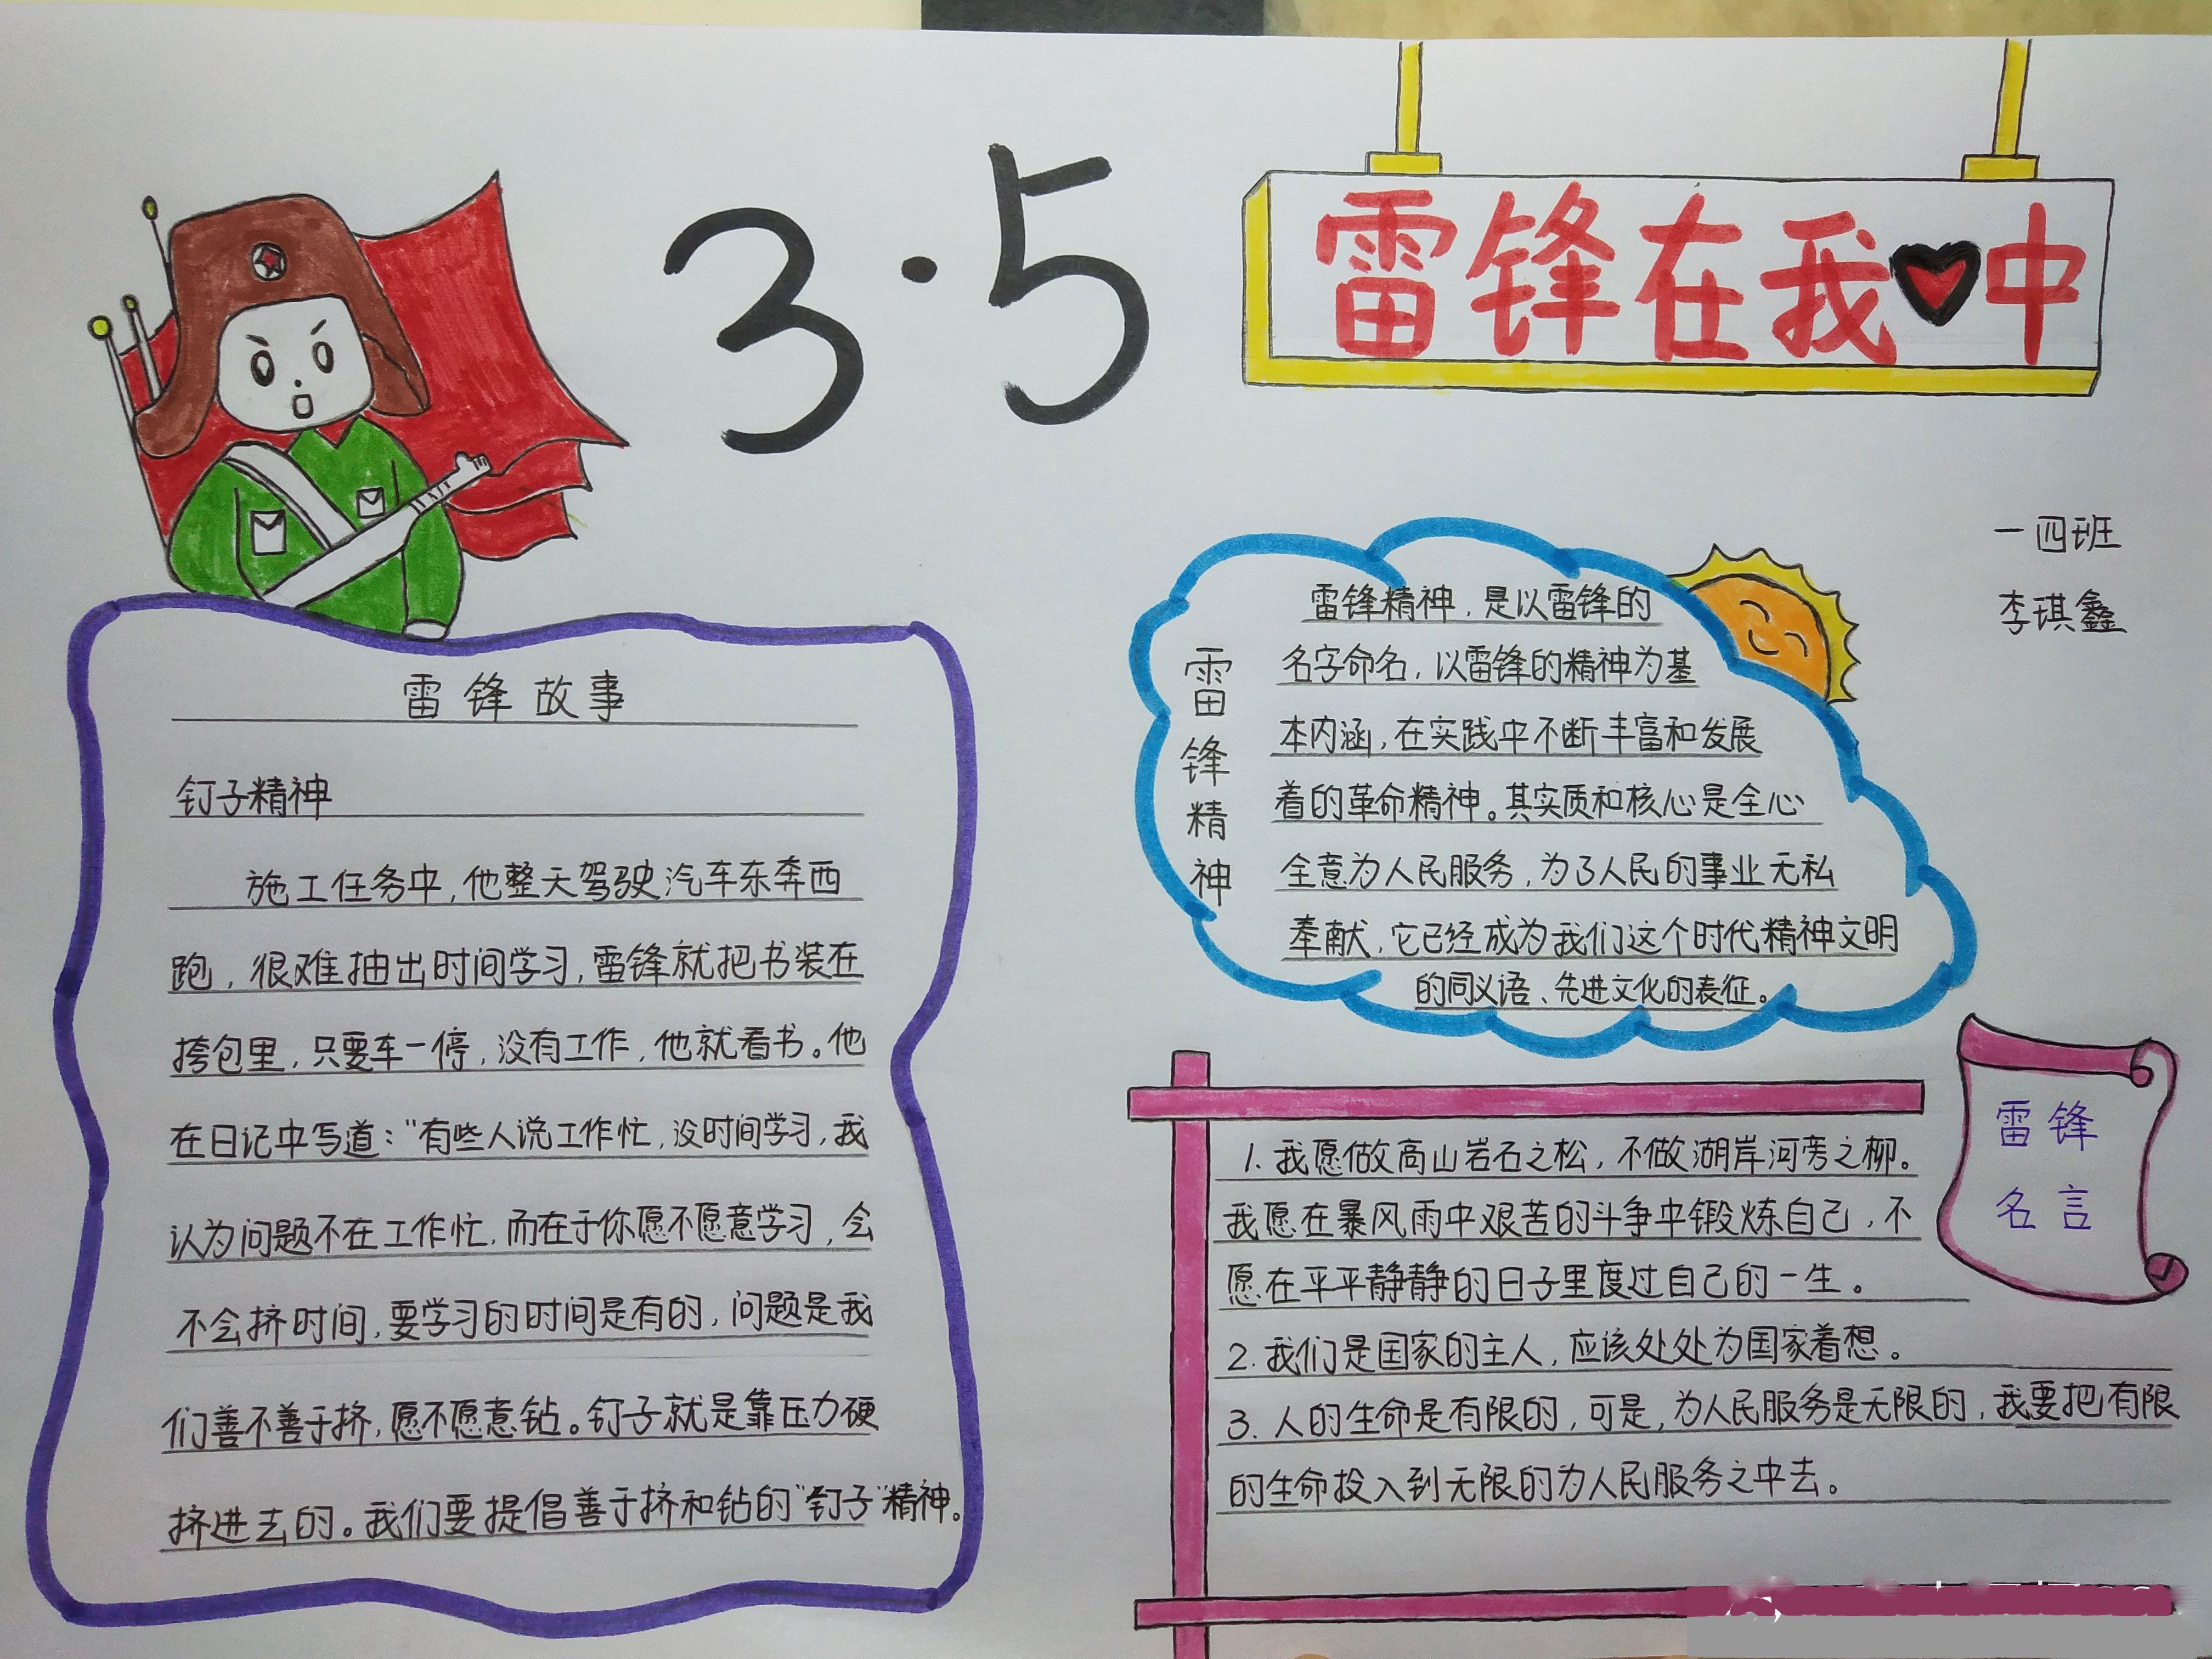 3·5
雷锋在我♥中
一四班
李琪鑫
雷锋故事
钉子精神
施工任务中，他整天驾驶汽车东奔西
跑，很难抽出时间学习，雷锋就把书装在
挎包里，只要车一停，没有工作，他就看书。他
在日记中写道："有些人说工作忙，没时间学习，我
认为问题不在工作忙，而在于你愿不愿意学习，会
不会挤时间，要学习的时间是有的，问题是我
们善不善于挤，愿不愿意钻。钉子就是靠压力硬
挤进去的。我们要提倡善于挤和钻的"钉子"精神。
雷锋精神
雷锋精神，是以雷锋的
名字命名，以雷锋的精神为基
本内涵，在实践中不断丰富和发展
着的革命精神。其实质和核心是全心
全意为人民服务，为了人民的事业无私
奉献，它已经成为我们这个时代精神文明
的同义语、先进文化的表征。
雷锋
名言
1. 我愿做高山岩石之松，不做湖岸河旁之柳。
我愿在暴风雨中艰苦的斗争中锻炼自己，不
愿在平平静静的日子里度过自己的一生。
2. 我们是国家的主人，应该处处为国家着想。
3. 人的生命是有限的，可是，为人民服务是无限的，我要把有限
的生命投入到无限的为人民服务之中去。